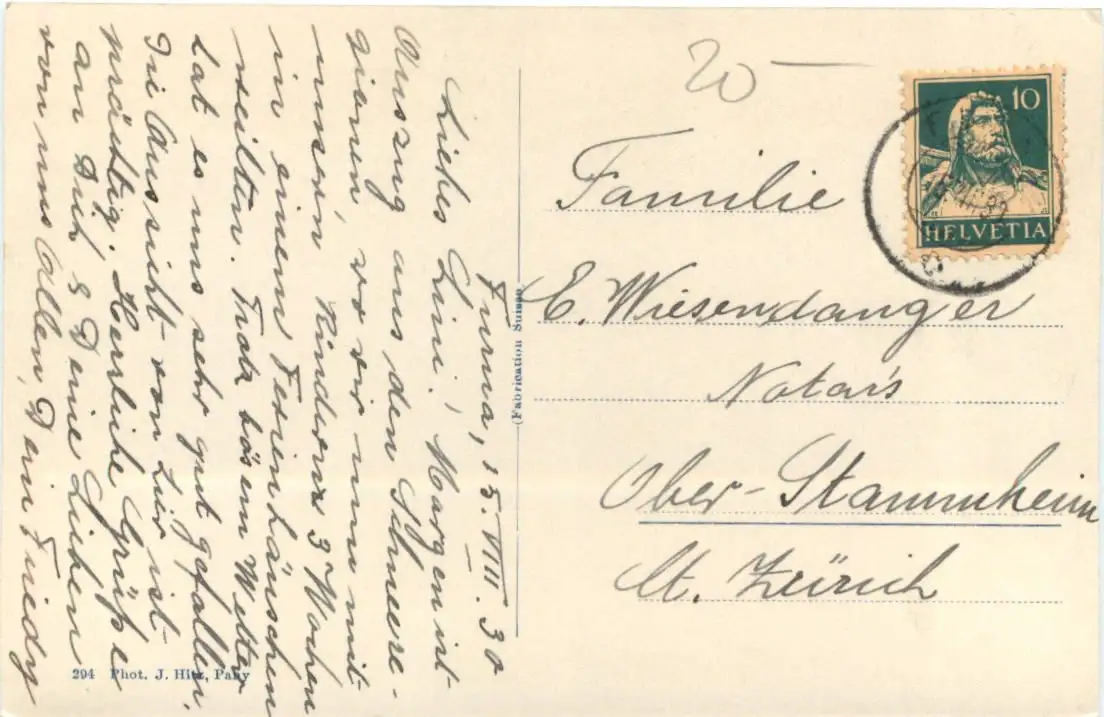 Furna, 15. VIII. 30
Liebes Lini! Morgen ist
Auszug aus den Schwere-
wo wir nun mit
unsern Kindern 3 Wochen
in einem Ferienhäuschen
weilten. Trotz bösem Wetter
hat es uns sehr gut gefallen.
Die Aussicht von hier ist
prächtig. Herzliche Grüsse
an Dich & Deine Lieben
von uns Allen, Dein Friedy
20
Familie
E. Wiesendanger
Notar's
Ober-Stammheim
Ct. Zürich
10
HELVETIA
(Fabrication Suisse)
294 Phot. J. Hitz, Pany